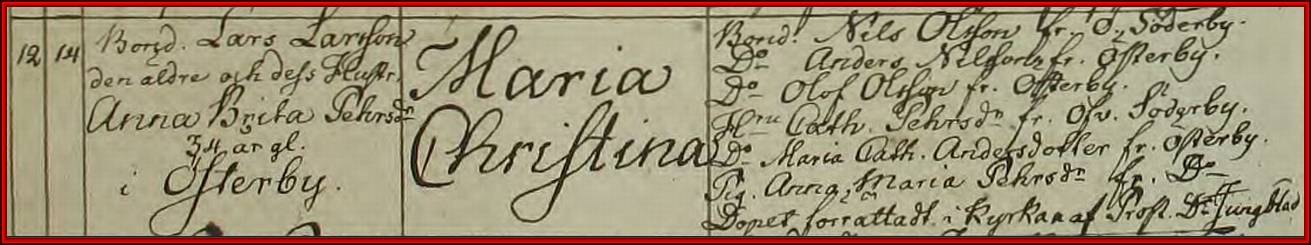 12 14
Bond. Lars Larsson
den äldre och dess Hustr.
Anna Brita Pehrsdr
34 år gl.
i Österby.
Maria
Christina
Bond. Nils Olsson fr. Ö. Söderby.
Do Anders Nilsson fr. Österby.
Do Olof Olsson fr. Österby.
Hru Cath. Pehrsdr fr. Öfv. Söderby.
Do Maria Cath. Andersdotter fr. Österby.
Pig. Anna Maria Pehrsdr fr. Do
Dopet förrättadt i Kyrkan af Prost. Dr Ljungblad